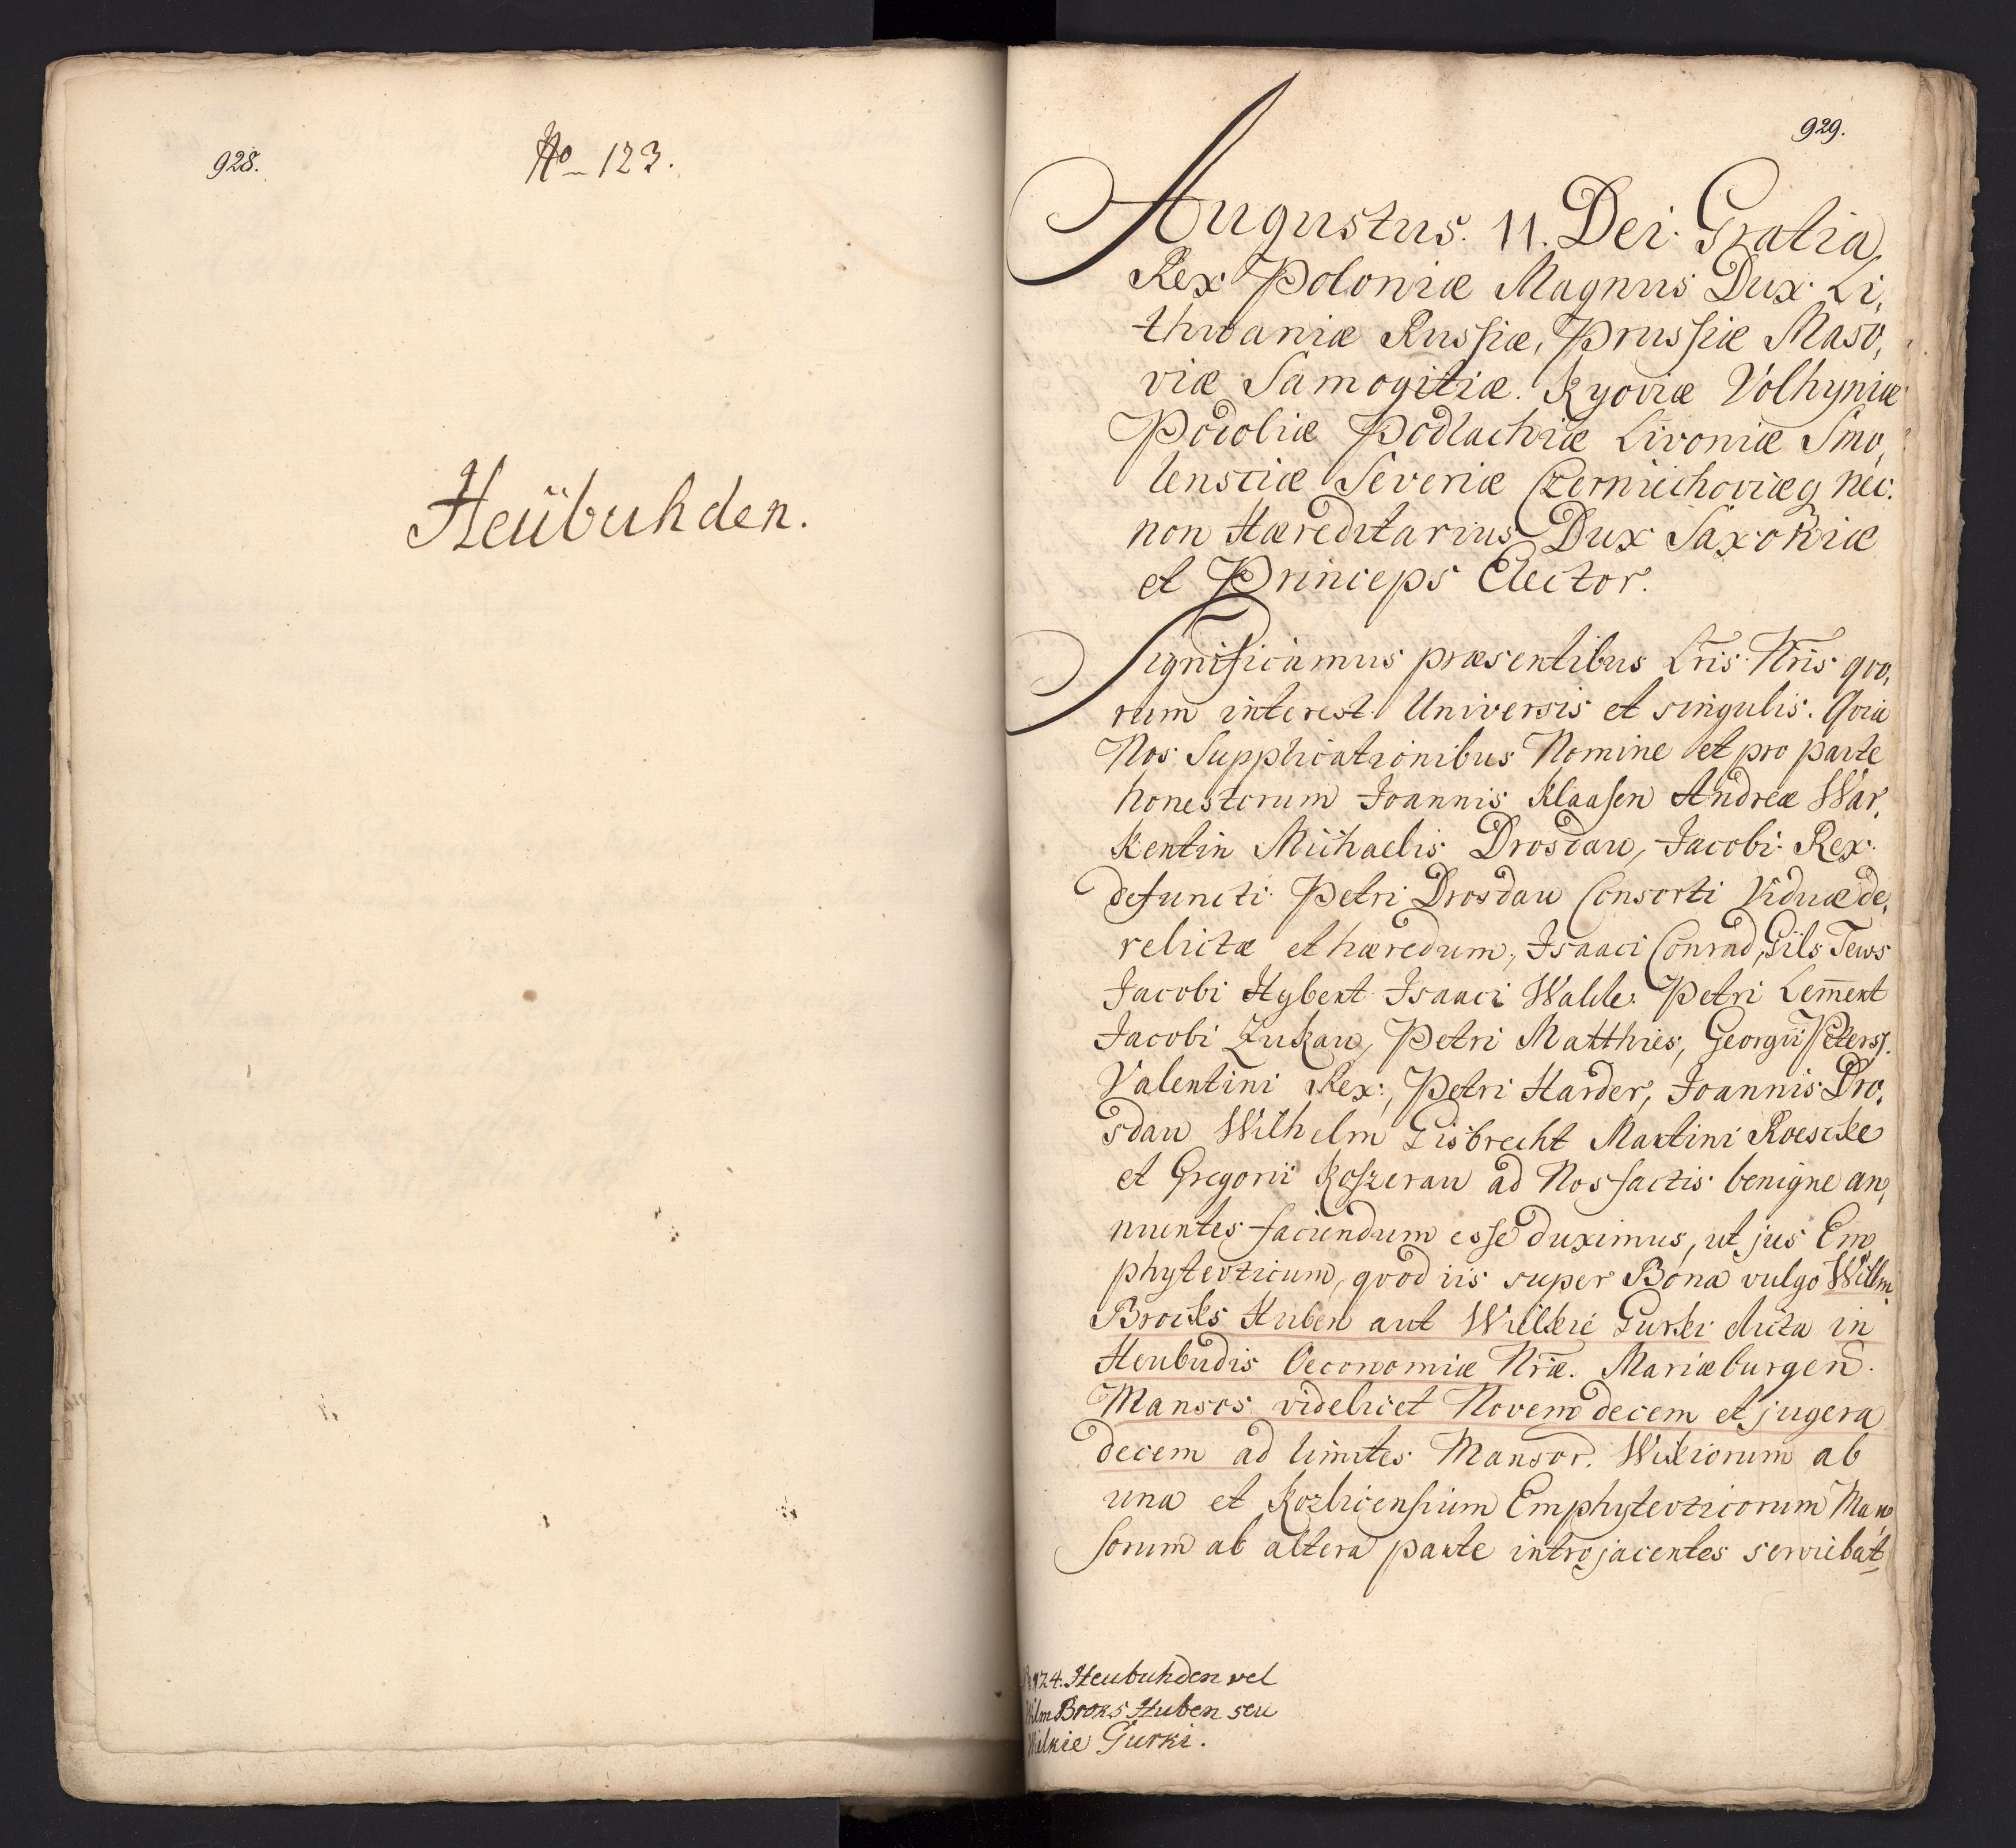 928.
No 123.
Heübuhden.
929.
Augustus. 11. Dei Gratia,
Rex Poloniæ Magnus Dux Li,
thuaniæ Russiæ, Prussiæ Maso,
viæ Samogitiæ. Kyoviæ Volhyniæ
Podoliæ Podlachiæ Livoniæ Smo,
lensciæ Severiæ Czerniechoviæq nec
non Hæreditarius Dux Saxoniæ
et Princeps Elector.
Significamus præsentibus Lris Nris qvo,
rum interest. Universis et singulis. Qvia
Nos Supplicationibus Nomine et pro parte
honestorum Joannis Klaasen Andreæ War,
kentin Michaelis Drosdau, Jacobi Rex
defuncti Petri Drosdau Consorti Viduæ de,
relictæ et hæredum, Isaaci Conrad, Gils Tews
Jacobi Hybert Isaaci Walde Petri Lem̄ent
Jacobi Zukau, Petri Matthies, Georgii Peters.
Valentini Rex, Petri Harder, Joannis Dro,
sdau Wilhelm Gisbrecht Martini Roescke
et Gregorii Koszerau ad Nos factis benigne an,
nuentes faciendum esse duximus, ut jus Em
phytevticum, qvod iis super Bona vulgo Willm
Brocks Huben aut Wielkie Gurki dicta in
Heubudis Oeconomiæ Nræ. Mariæburgen.
Mansos videlicet Novem decem et jugera
decem ad limites Mansor. Wikiorum ab
una et Kozlicensium Emphytevticorum Man
sorum ab altera parte introjacentes serviebat
124. Heubuhden vel
Wilm Broks Huben seu
Wielkie Gurki.